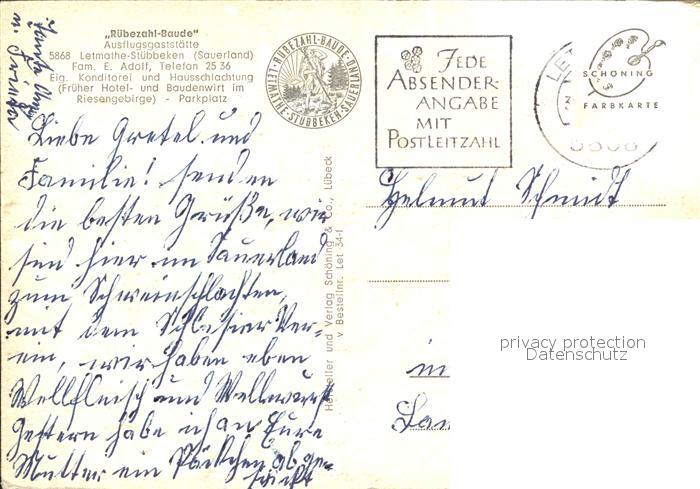 „Rübezahl-Baude"
Ausflugsgaststätte
5868 Letmathe-Stübbeken (Sauerland)
Fam. E. Adolf, Telefon 25 36
Eig. Konditorei und Hausschlachtung
(Früher Hotel- und Baudenwirt im
Riesengebirge) - Parkplatz
RÜBEZAHL-BAUDE·
LETMATHE-STÜBBEKEN-SAUERLAND
JEDE
ABSENDER-
ANGABE
MIT
POSTLEITZAHL
LET
SCHÖNING
FARBKARTE
5868
Liebe Gretel und
Familie! senden
die besten Grüße, wir
sind hier im Sauerland
zum Schweinschlachten,
mit dem Schlesier Ver=
ein, wir haben eben
Wellfleisch und Wellwurst
gestern habe ich an Eure
Mutter ein Päckchen abge=
schickt
Hersteller und Verlag Schöning & Co., Lübeck
Bestellnr. Let 34-1
Helmut Schmidt
in
privacy protection
Datenschutz